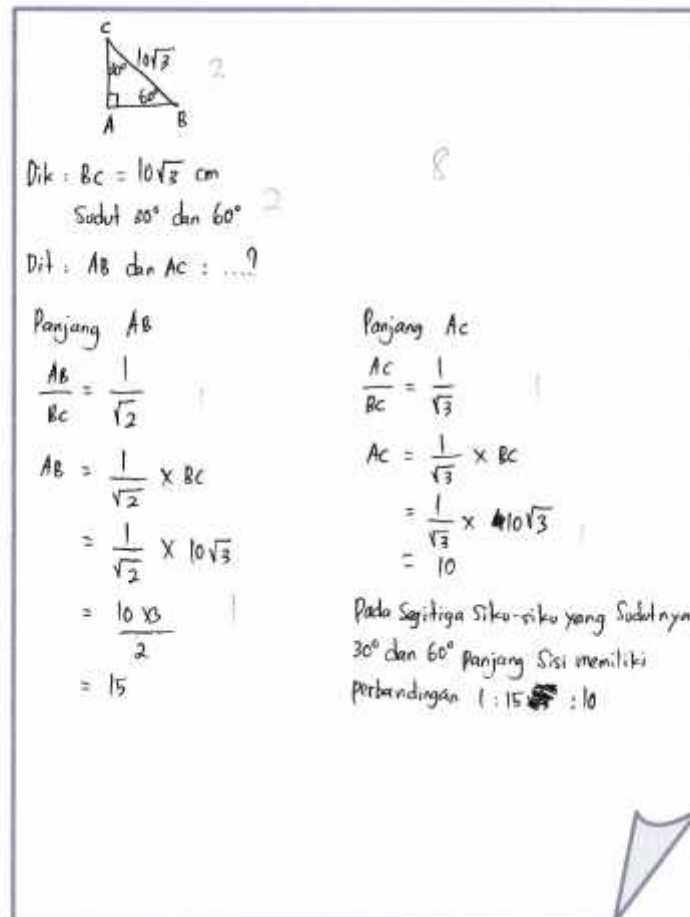 C
30° 10√3 2
60°
A B
Dik : BC = 10√3 cm
8
Sudut 30° dan 60° 2
Dit : AB dan AC : ....?
Panjang AB
AB/BC = 1/√2 1
AB = 1/√2 × BC
= 1/√2 × 10√3
= 10 x3/2 1
= 15
Panjang AC
AC/BC = 1/√3 1
AC = 1/√3 × BC
= 1/√3 × 10√3 1
= 10
Pada Segitiga Siku-siku yang Sudutnya
30° dan 60° panjang Sisi memiliki
perbandingan 1 : 15 : 10